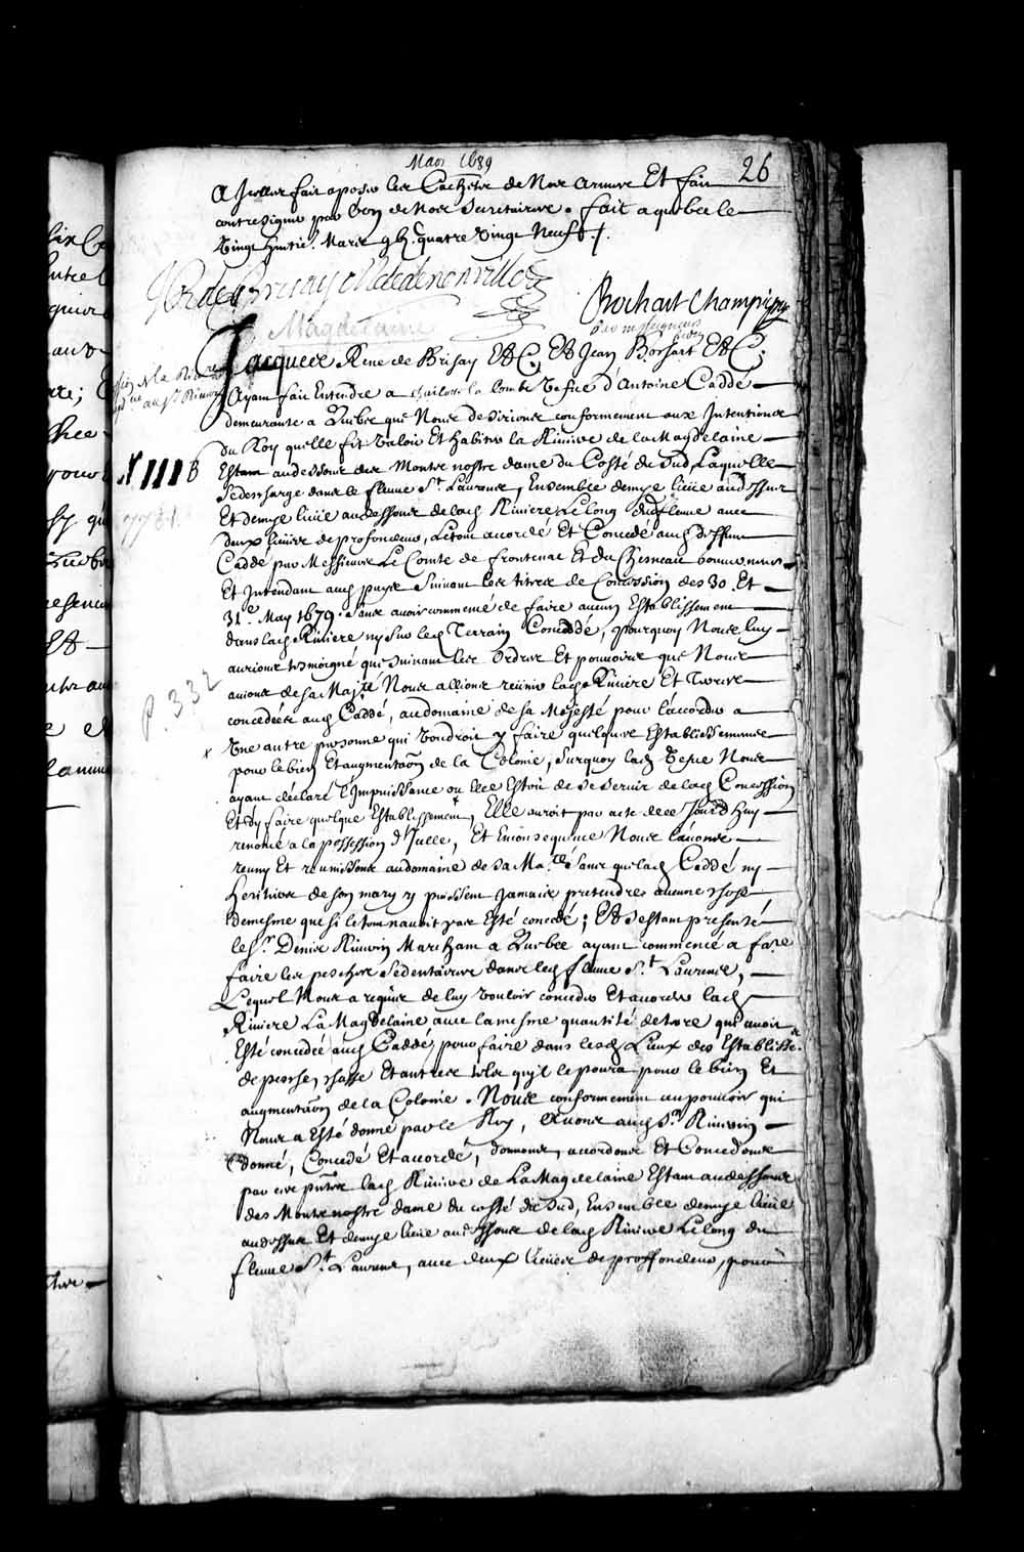 Mars 1689
26
a Icelles fait aposer les Cachets de Nos armes Et fait
contresigner par l'un de Nos Secretaires. fait a quebecle
Vingt huitie. Mars g bj. quatre Vingt Neuf./.
JR de Brisay M de denonville
Bochart Champigny
Magdelaine
par messeigneurs
Jacques Rene de Brisay &C. Et Jean Bochart &C.
Ayant fait Entendre a la Vefue d'Antoine Caddé
demeurante a Quebec que Nous desirions conformement aux Intentions
du Roy quelle fit Valoir Et habiter la Riviere de la Magdelaine
N 1116
Estant audessous des Monts nostre dame du Costé du Sud, Laquelle
Sedescharge dans le fleuve St. Laurence, Ensemble demye lieüe audessus
Et demye lieüe audessous de lad. Riviere, Le long dud. fleuve avec
deux lieües de profondeur, Letout acordé Et Concedé aud. deffunt
Caddé par Messieurs Le Comte de frontenac Et du Chesneau Gouverneur
Et Intendant aud. pays Suivant les titres de Concession des 30. Et
31e. May 1679. Sans avoir commencé de faire aucun Establissement
dans lad. Riviere ny Sur led. Terrain Concedé, pourquoy Nous luy
aurions tesmoigné que Suivant les Ordres Et pouvoirs que Nous
P. 332
avions de sa Majté Nous allions reünir lad. Riviere Et Terres
concedées aud. Caddé, audomaine de sa Majesté pour l'accorder a
Une autre personne qui Voudroit y faire quelques Establissemens
pour le bien Et augmentaõn de la Colonie, Surquoy lad. Vefue Nous
ayant declaré l'Impuissance ou elle Estoit de se servir de lad. Concession
Et dy faire quelque Establissement, Elle auroit par acte de ce Jourdhuy
renoncé a la possession d'Icelle, Et Enconsequence Nous l'avons
reuny Et reunissons audomaine de sa Ma.té Sans que lad. Caddé ny
heritiers de son mary y puissent Jamais pretendre aucune chose
Demesme que si letout nauoit pas Esté concedé; Et s'estant presenté
le Sr. Denis Riverin Marchant a Quebec ayant commencé a faire
faire les pesches Sedentaires dans led. fleuve St. Laurence,
Lequel Nous a requis de luy vouloir conceder Et acorder lad.
Riviere La Magdelaine avec la mesme quantité de terre qui auoit
Esté concedée aud. Caddé, pour faire dans lesd. Lieux des Establissts.
de pesche, chasse Et autres tels quyl le poura pour le bien Et
augmentaõn de la Colonie. Nous conformement au pouvoir qui
Nous a Esté donné par le Roy, Avons aud. Sr. Riverin
donné, Concedé Et accordé, donnons, accordons Et Concedons
par ces pntes lad. Riviere de La Magdelaine Estant audessous
des Monts nostre dame du costé du Sud, Ensemble demye lieüe
audessus Et demye lieüe audessous de lad. Riviere Le long du
fleuve St. Laurence, avec deux lieües de proffondeur, pour